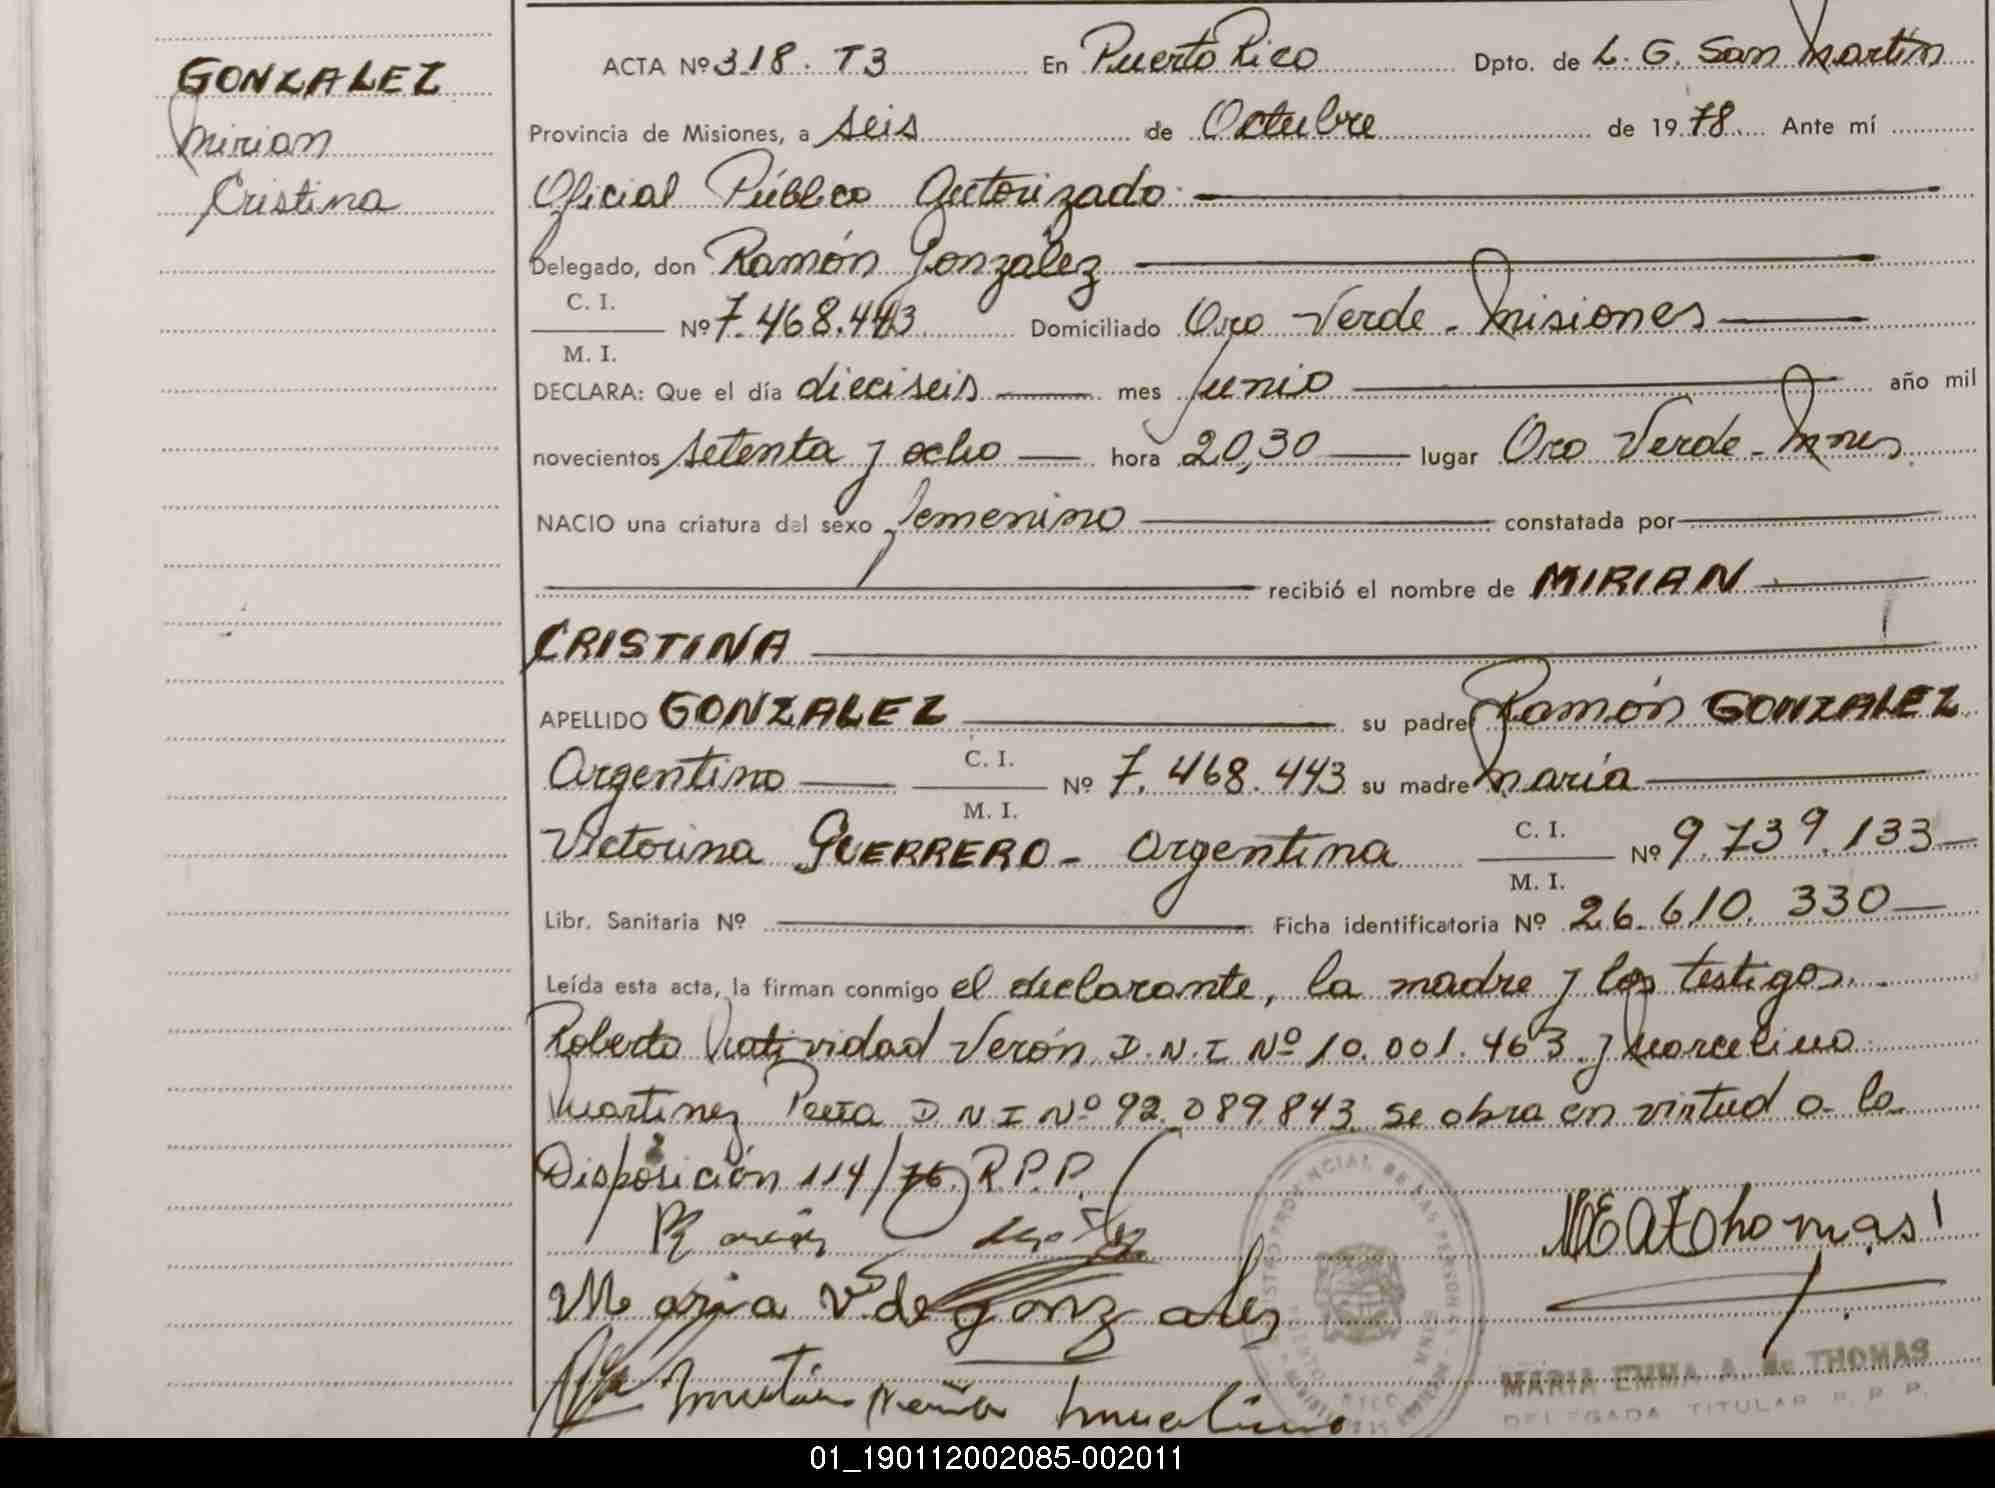 GONZALEZ
Mirian
Cristina
ACTA Nº 318. T3 En Puerto Rico Dpto. de L. G. San Martín
Provincia de Misiones, a seis de Octubre de 1978 Ante mí
Oficial Público Autorizado
Delegado, don Ramón González
C. I.
M. I.
Nº 7.468.443 Domiciliado Oro Verde - Misiones
DECLARA: Que el día dieciseis mes junio año mil
novecientos setenta y ocho hora 20,30 lugar Oro Verde - Mnes
NACIO una criatura del sexo femenino constatada por
recibió el nombre de MIRIAN
CRISTINA
APELLIDO GONZALEZ su padre Ramón GONZALEZ
Argentino C. I. M. I. Nº 7.468.443 su madre María
Victorina GUERRERO - Argentina C. I. M. I. Nº 9.739.133
Libr. Sanitaria Nº Ficha identificatoria Nº 26.610.330
Leída esta acta, la firman conmigo el declarante, la madre y los testigos
Roberto Natividad Verón D.N.I Nº 10.001.463 y Marcelino
Martinez Peña D.N.I Nº 92.089.843 se obra en virtud a la
Disposición 114/76 R.P.P.
Ramón
MEATThomas
Maria V. de gonzales
MARIA EMMA A. de THOMAS
DELEGADA TITULAR R. P. P.
01_190112002085-002011